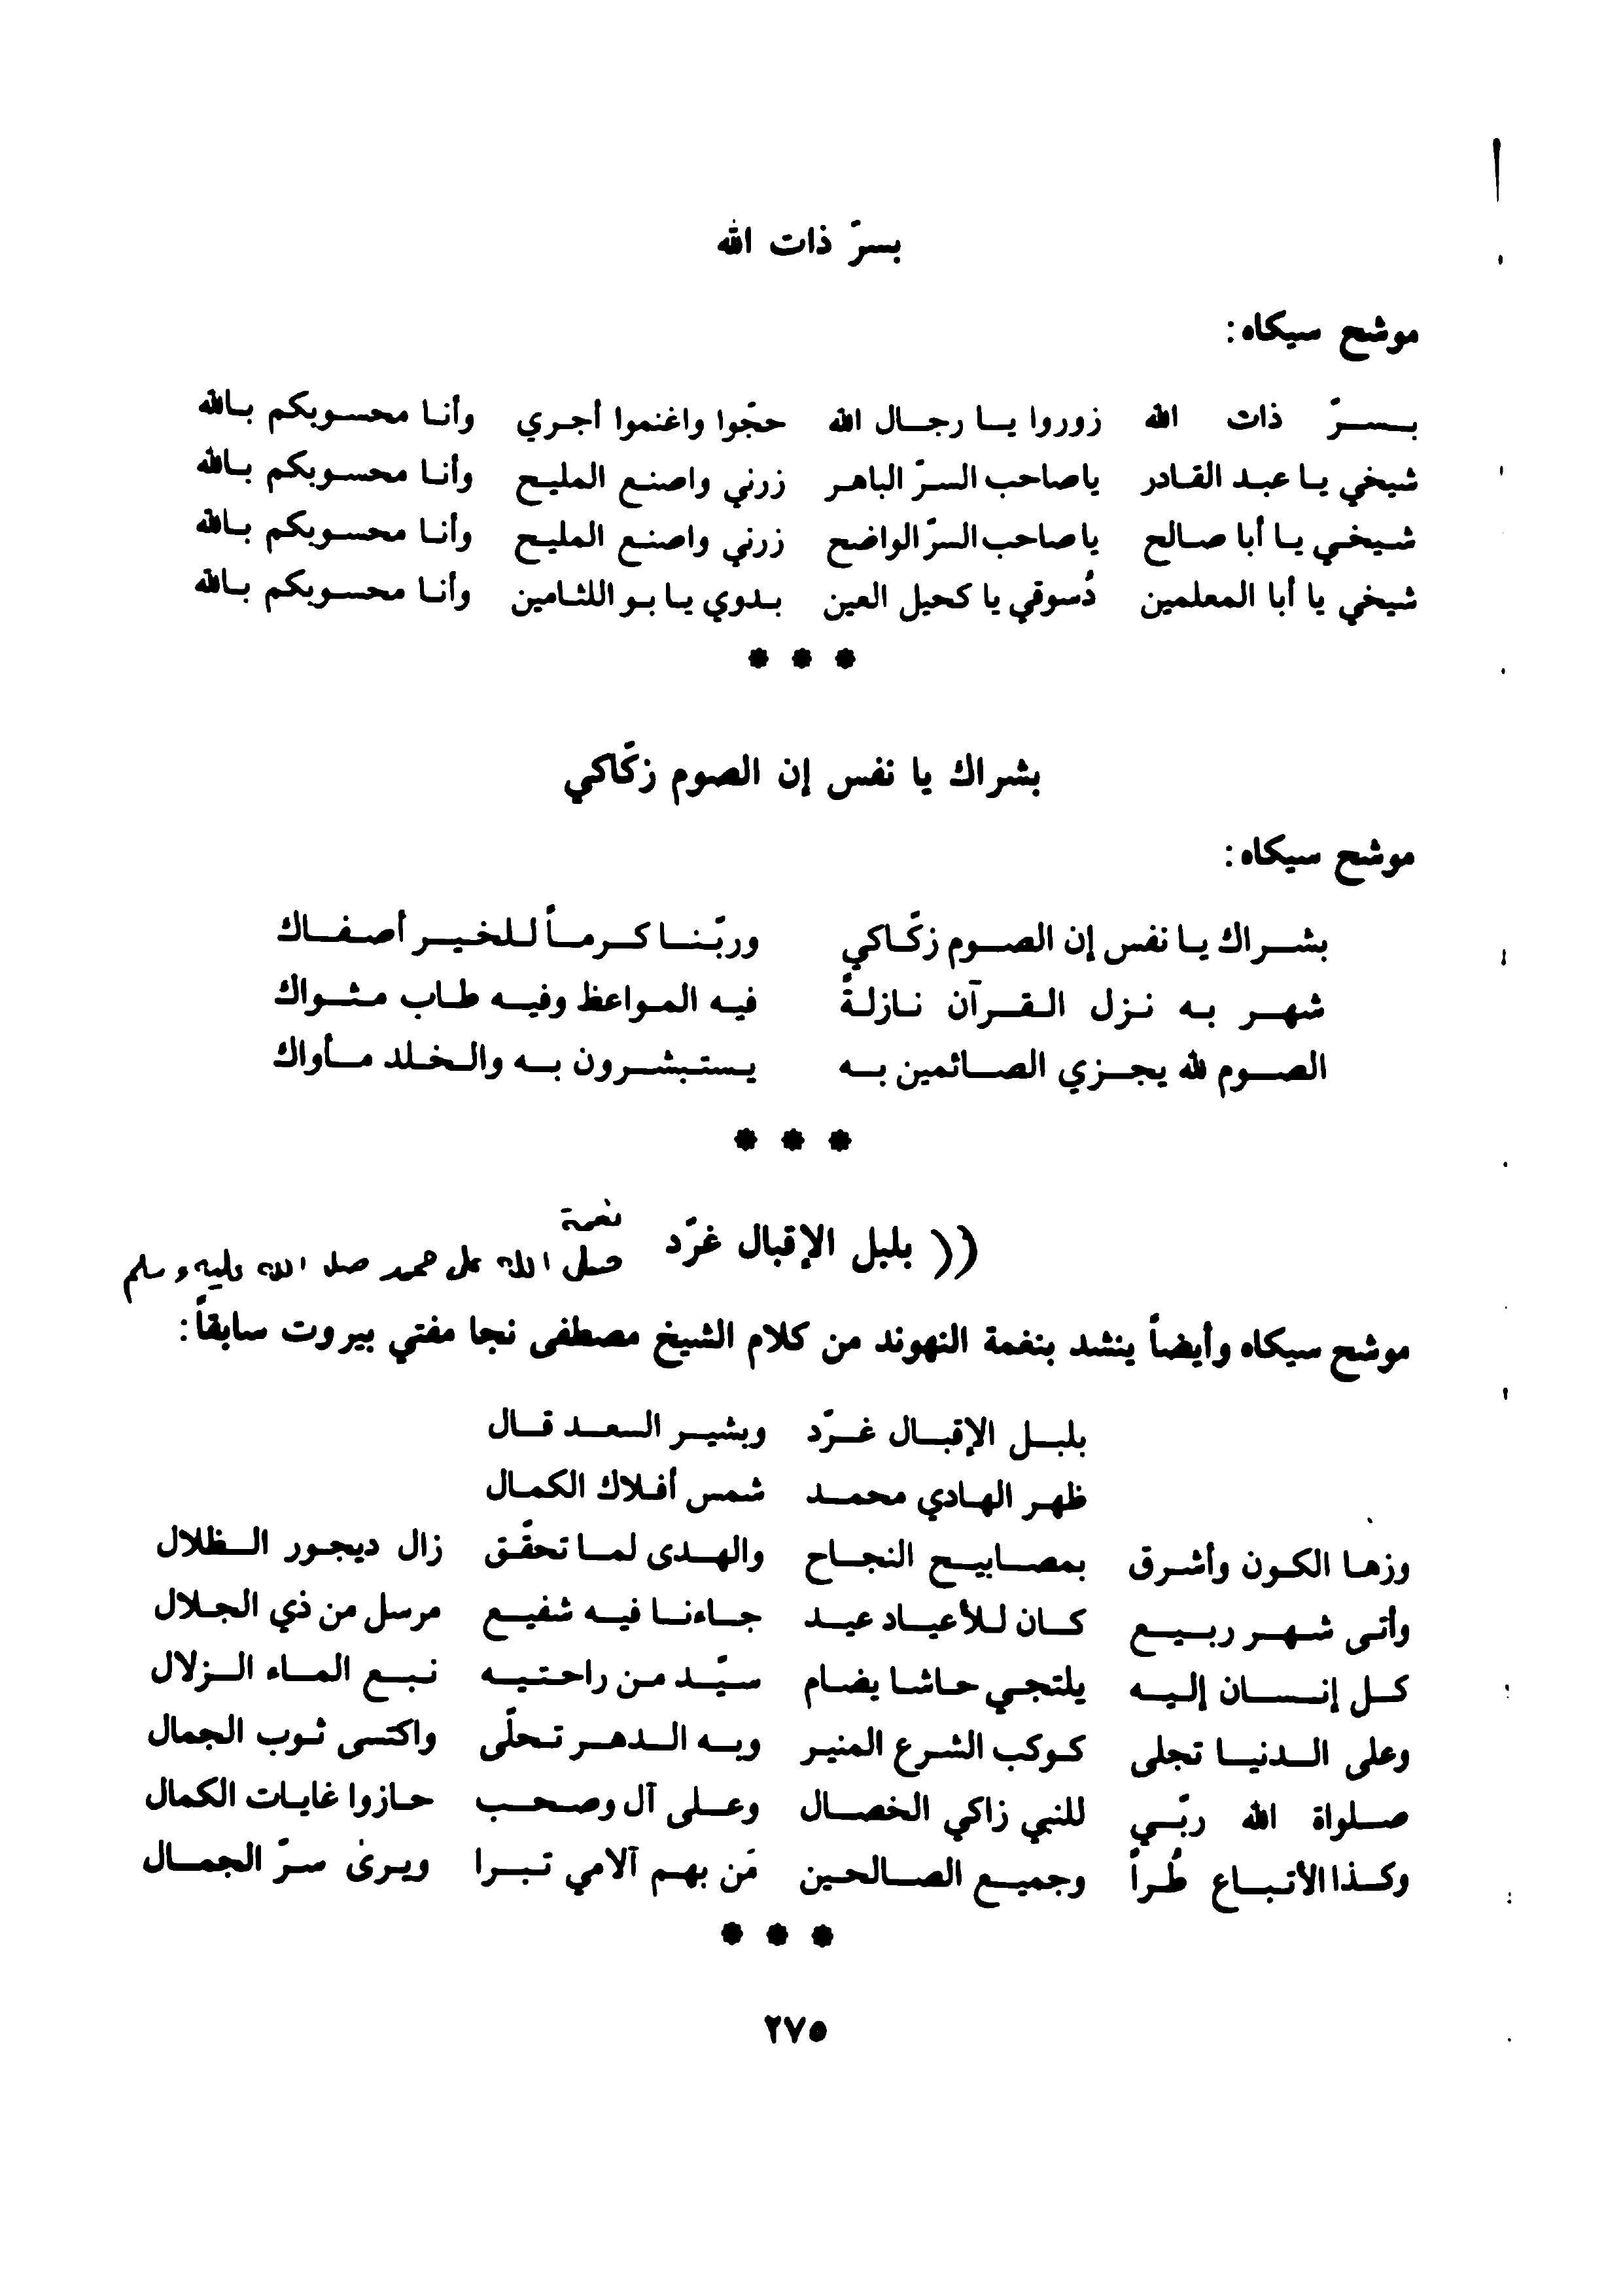 بسرّ ذات الله
موشح سيكاه:
بسرّ ذات الله زوروا يا رجال الله حجّوا واغنموا أجري وأنا محسوبكم بالله
شيخي يا عبد القادر ياصاحب السرّ الباهر زرني واصنع المليح وأنا محسوبكم بالله
شيخي يا أبا صالح ياصاحب السرّ الواضح زرني واصنع المليح وأنا محسوبكم بالله
شيخي يا أبا المعلمين دُسوقي يا كحيل العين بدوي يا بو اللثامين وأنا محسوبكم بالله
* * *
بشراك يا نفس إن الصوم زكّاكي
موشح سيكاه:
بشراك يا نفس إن الصوم زكّاكي وربّنا كرماً للخير أصفاك
شهر به نزل القرآن نازلةً فيه المواعظ وفيه طاب مثواك
الصوم لله يجزي الصائمين به يستبشرون به والخلد مأواك
* * *
نغمة
(( بلبل الإقبال غرّد صلى الله على محمد صلى الله عليه وسلم
موشح سيكاه وأيضاً ينشد بنغمة النهوند من كلام الشيخ مصطفى نجا مفتي بيروت سابقاً:
بلبل الإقبال غرّد وبشير السعد قال
ظهر الهادي محمد شمس أفلاك الكمال
وزها الكون وأشرق بمصابيح النجاح والهدى لما تحقّق زال ديجور الظلال
وأتى شهر ربيع كان للأعياد عيد جاءنا فيه شفيع مرسل من ذي الجلال
كل إنسان إليه يلتجي حاشا يضام سيّد من راحتيه نبع الماء الزلال
وعلى الدنيا تجلى كوكب الشرع المنير وبه الدهر تحلّى واكتسى ثوب الجمال
صلواة الله ربّي للنبي زاكي الخصال وعلى آل وصحب حازوا غايات الكمال
وكذا الأتباع طُراً وجميع الصالحين مَن بهم آلامي تبرا ويرى سرّ الجمال
* * *
٢٧٥